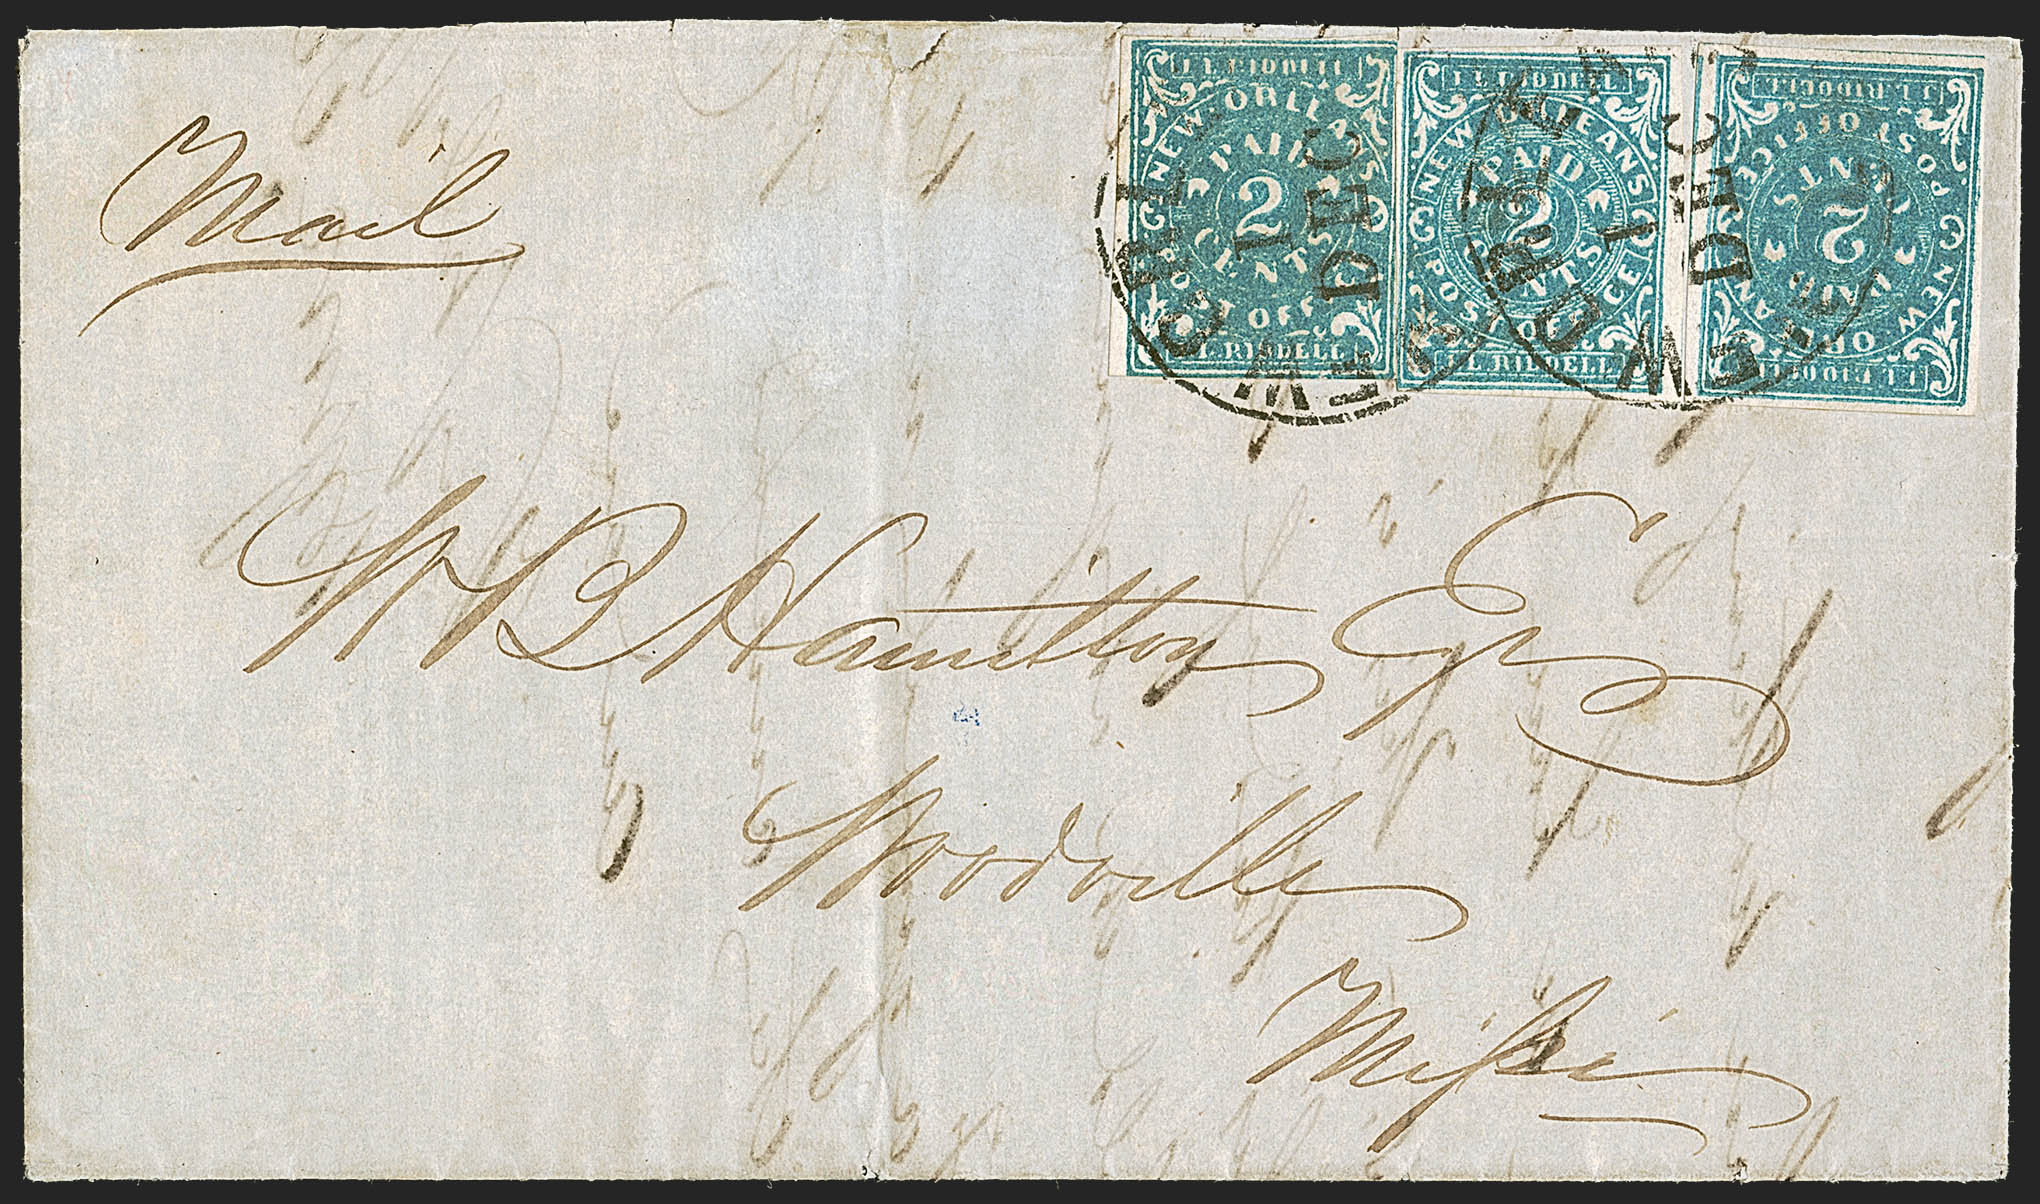 Mail
J. L. RIDDELL
NEW ORLEANS
PAID
2
CENTS
POST OFFICE
J. L. RIDDELL
J. L. RIDDELL
NEW ORLEANS
PAID
2
CENTS
POST OFFICE
J. L. RIDDELL
J. L. RIDDELL
NEW ORLEANS
PAID
2
CENTS
POST OFFICE
J. L. RIDDELL
NEW ORLEANS
1
DEC
NEW ORLEANS
1
DEC
W B Hamilton Esqr
Woodville
Missi